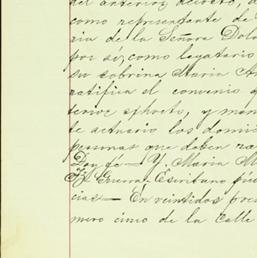 del anterior decreto, a
como representante de
ria de la Señora Dolo
por sí, como legatario
su sobrina Maria An
ratifica el convenio q
terior y man
te actuario los domi
personas que deben ra
Doy fé — Y. Maria M
Guerra. Escribano
cias — En veintidos
mero cinco de la calle